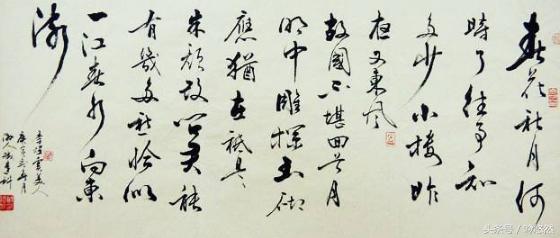 春花秋月何
時了往事知
多少小樓昨
夜又東風
故國不堪回首月
明中雕欄玉砌
應猶在祗是
朱顏改問君能
有幾多愁恰似
一江春水向東
流
李煜虞美人
头条号